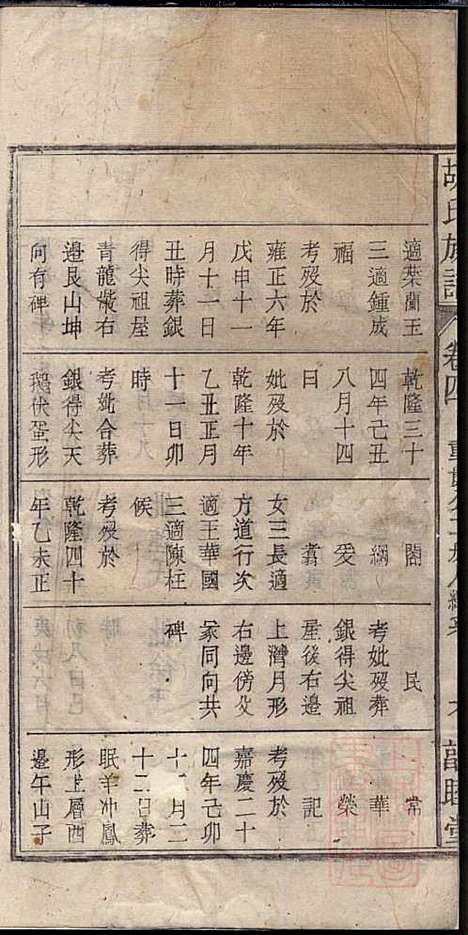 胡氏族譜 卷四
睦堂
適葉蘭玉
三適鍾成
福
考歿於
雍正六年
戊申十一
月十一日
丑時葬銀
得尖祖屋
青龍嘴右
邊艮山坤
向有碑
乾隆三十
四年己丑
八月十四
日
妣歿於
乾隆十年
乙丑正月
十一日卯
時
考妣合葬
銀得尖天
鵝伏蛋形
閣
綱
爱
翥
女三長適
方道行次
適王華國
三適陳枉
候
考歿於
乾隆四十
年乙未正
民
考妣歿葬
銀得尖祖
屋後右邊
上灣月形
右邊傍父
冢同向共
碑
常
華
榮
記
考歿於
嘉慶二十
四年己卯
十一月二
十二日葬
眠羊冲鳳
形上層酉
邊午山子